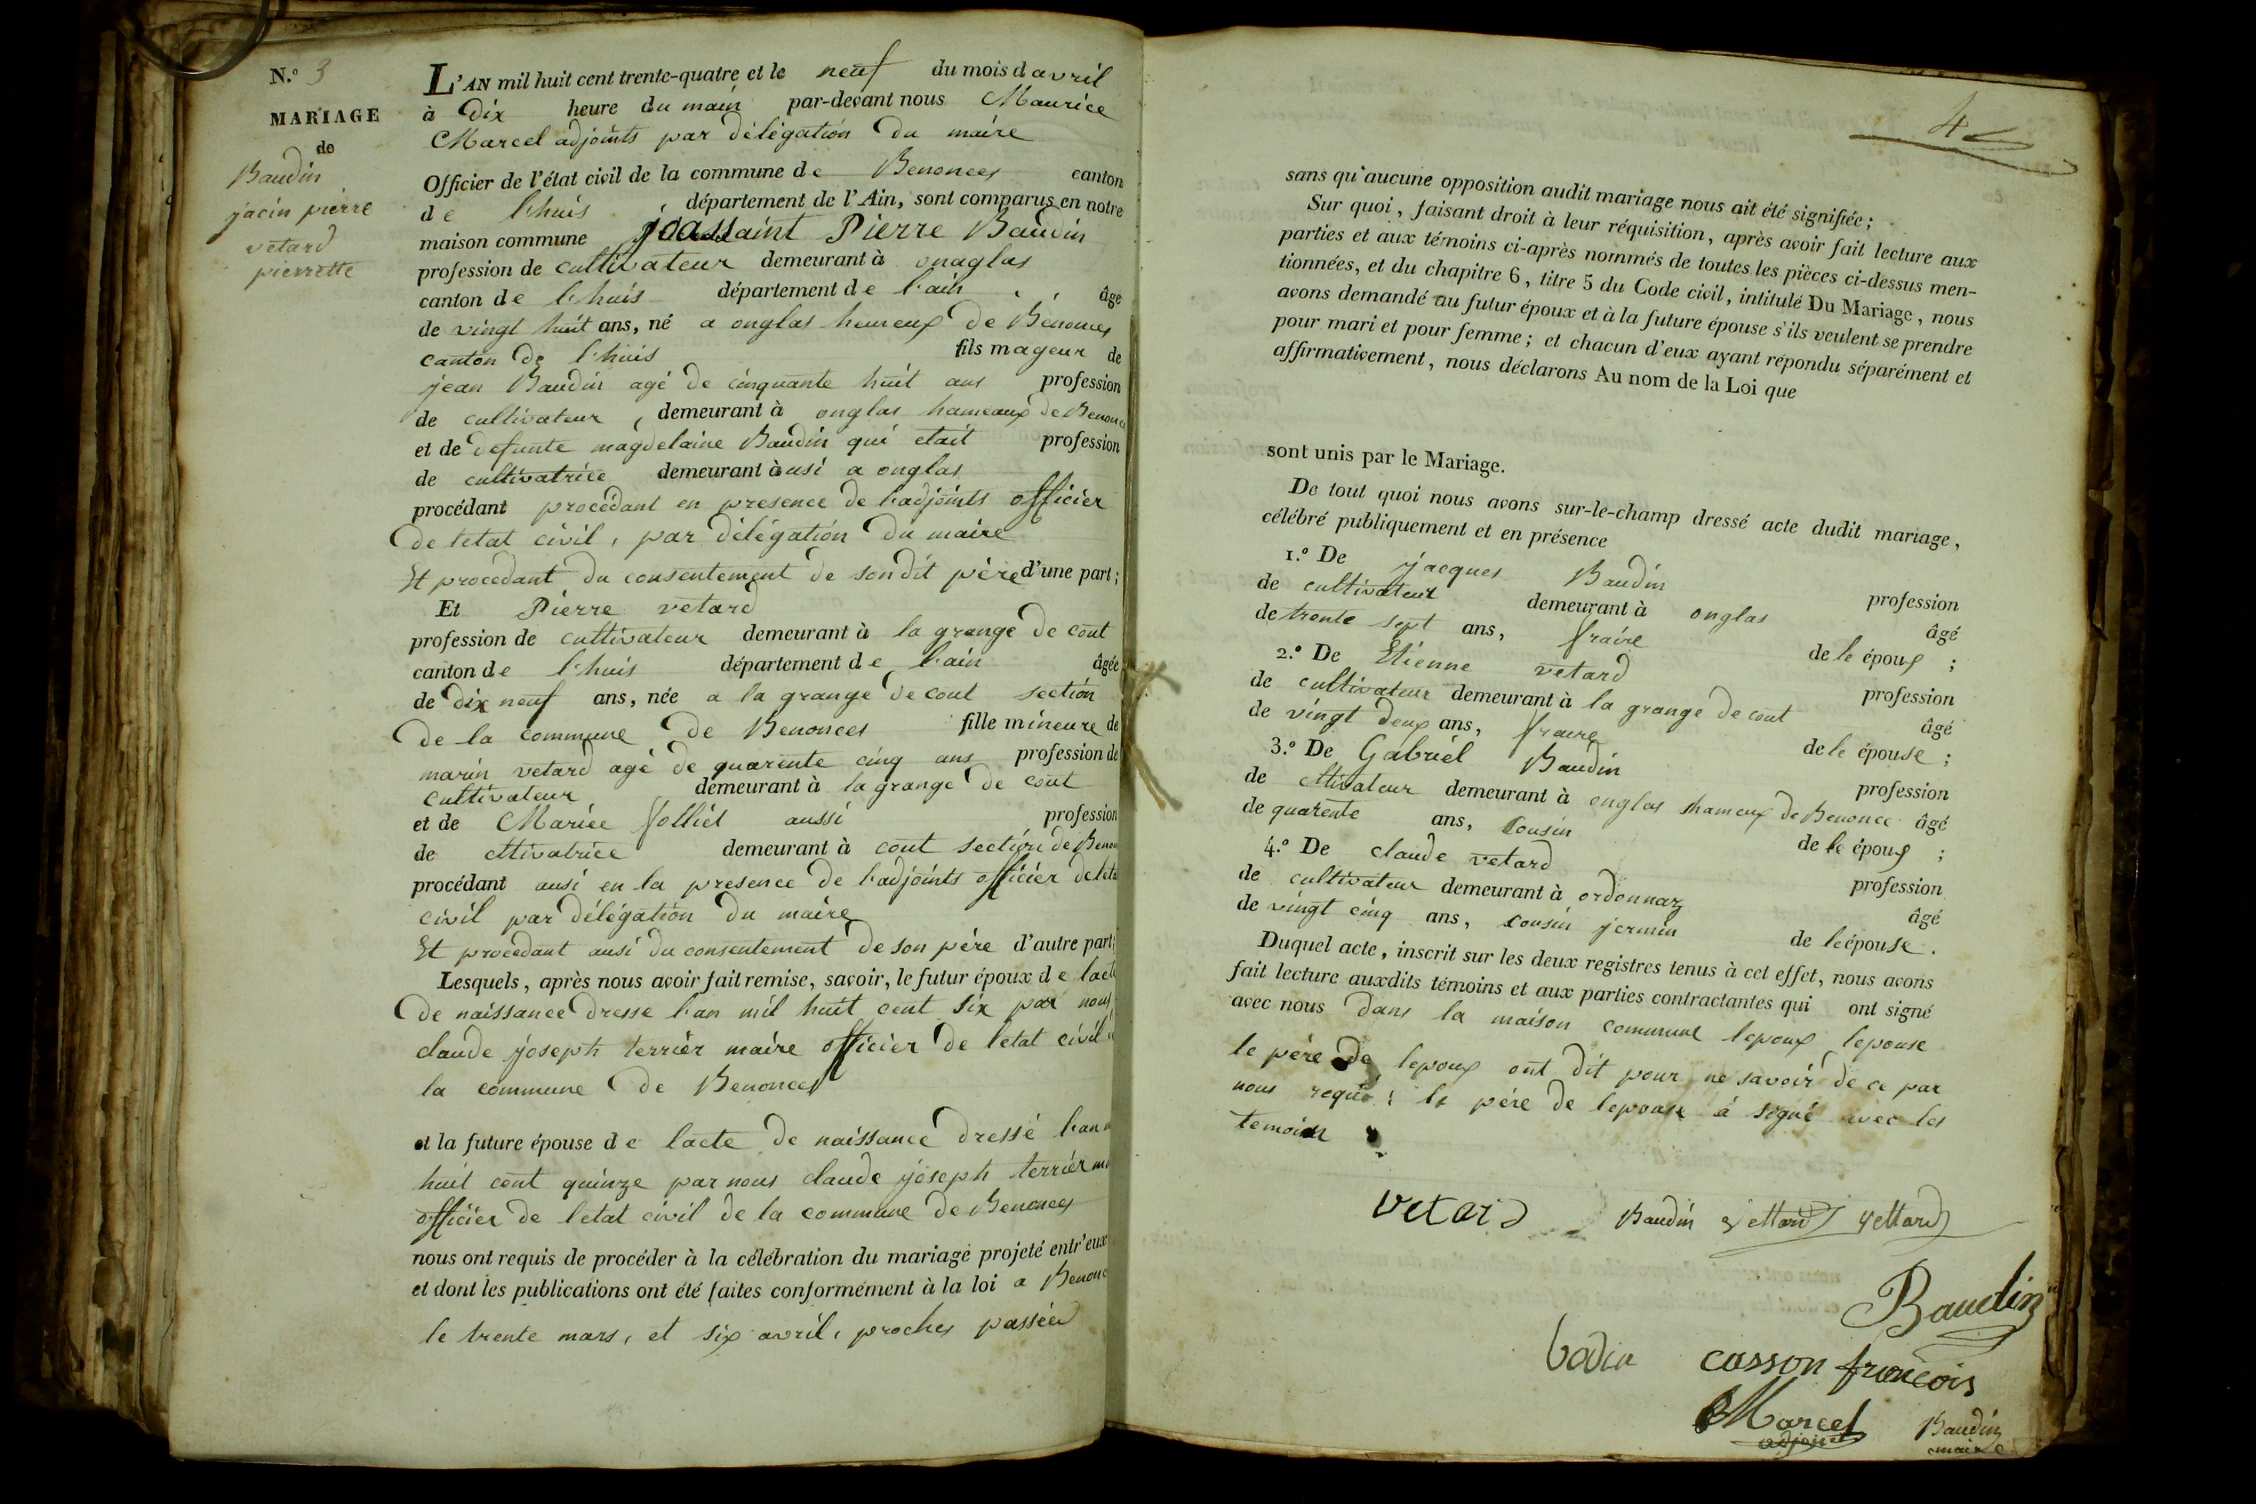 N.º 3
MARIAGE
de
Baudin
jacin pierre
vetard
pierrette
L'AN mil huit cent trente-quatre et le neuf du mois d avril
à Dix heure du main par-devant nous Maurice
Marcel adjoints par délégation du maire
Officier de l'état civil de la commune de Benonces canton
de l'huis département de l'Ain, sont comparus en notre
maison commune Pierre Baudin
profession de cultivateur demeurant à onaglas
canton de l'huis département de l'ain âgé
de vingt huit ans, né a onglas hemeux de Benonces
canton de l'huis fils mageur de
jean Baudin agé de cinquante huit ans profession
de cultivateur, demeurant à onglas hameaux de Benonce
et de defunte magdelaine Baudin qui etait profession
de cultivatrice demeurant à usi a onglas
procédant procédant en presence de l'adjoints officier
de letat civil, par délégation du maire
Et procedant du consentement de son dit père d'une part;
Et Pierre vetard
profession de cultivateur demeurant à la grange de cout
canton de l'huis département de l'ain âgée
de dix neuf ans, née a la grange de cout section
de la commune de Benonces fille mineure de
marin vetard agé de quarente cinq ans profession de
cultivateur demeurant à la grange de cout
et de Mariée Jolliet aussi profession
de cttivatrice demeurant à cout section de Benon
procédant ausi en la presence de l'adjoints officier de leta
civil par délégation du maire
Et procedant ausi du consentement de son père d'autre part;
Lesquels, après nous avoir fait remise, savoir, le futur époux de lacte
de naissance dresse l'an mil huit cent six par nous
claude joseph terrier maire officier de letat civil
la commune de Benonces
et la future épouse de lacte de naissance dressé l'an
huit cent quinze par nous claude joseph terrier
officier de letat civil de la commune de Benonces
nous ont requis de procéder à la célébration du mariage projeté entr'eux
et dont les publications ont été faites conformément à la loi a Benonc
le trente mars, et six avril, proches passées
4
sans qu'aucune opposition audit mariage nous ait été signifiée;
Sur quoi, faisant droit à leur réquisition, après avoir fait lecture aux
parties et aux témoins ci-après nommés de toutes les pièces ci-dessus men-
tionnées, et du chapitre 6, titre 5 du Code civil, intitulé Du Mariage, nous
avons demandé au futur époux et à la future épouse s'ils veulent se prendre
pour mari et pour femme; et chacun d'eux ayant répondu séparément et
affirmativement, nous déclarons Au nom de la Loi que
sont unis par le Mariage.
De tout quoi nous avons sur-le-champ dressé acte dudit mariage,
célébré publiquement et en présence
1.º De jacques Baudin profession
de cultivateur demeurant à onglas âgé
de trente sept ans, fraire de le époux ;
2.º De Etienne vetard profession
de cultivateur demeurant à la grange de cout âgé
de vingt deux ans, fraire de le épouse ;
3.º De Gabriel Baudin profession
de cttivateur demeurant à onglas hameux de Benonce âgé
de quarente ans, Cousin de le époux ;
4.º De claude vetard profession
de cultivateur demeurant à ordonnaz âgé
de vingt cinq ans, cousin jermin de le épouse.
Duquel acte, inscrit sur les deux registres tenus à cet effet, nous avons
fait lecture auxdits témoins et aux parties contractantes qui ont signé
avec nous dans la maison commune lepoux lepouse
le père de lepoux ont dit pour ne savoir de ce par
nous requis; le père de lepouse à signé avec les
temoin
vetard Baudin vettard vettard
Baudin
bodin casson francois
Marcel Baudin
adjoint maire